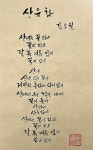 산유화
김소월
산에는 꽃 피네
꽃이 피네
갈 봄 여름 없이
꽃이 피네
산에
산에
피는 꽃은
저만치 혼자서 피어있네
산에서 우는 작은 새여
꽃이 좋아
산에서
사노라네
산에는 꽃 지네
꽃이 지네
갈 봄 여름 없이
꽃이 지네